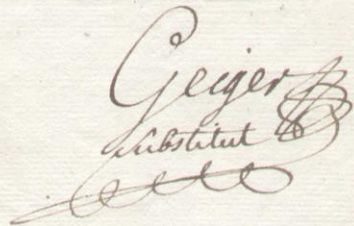 Geiger
Substitut